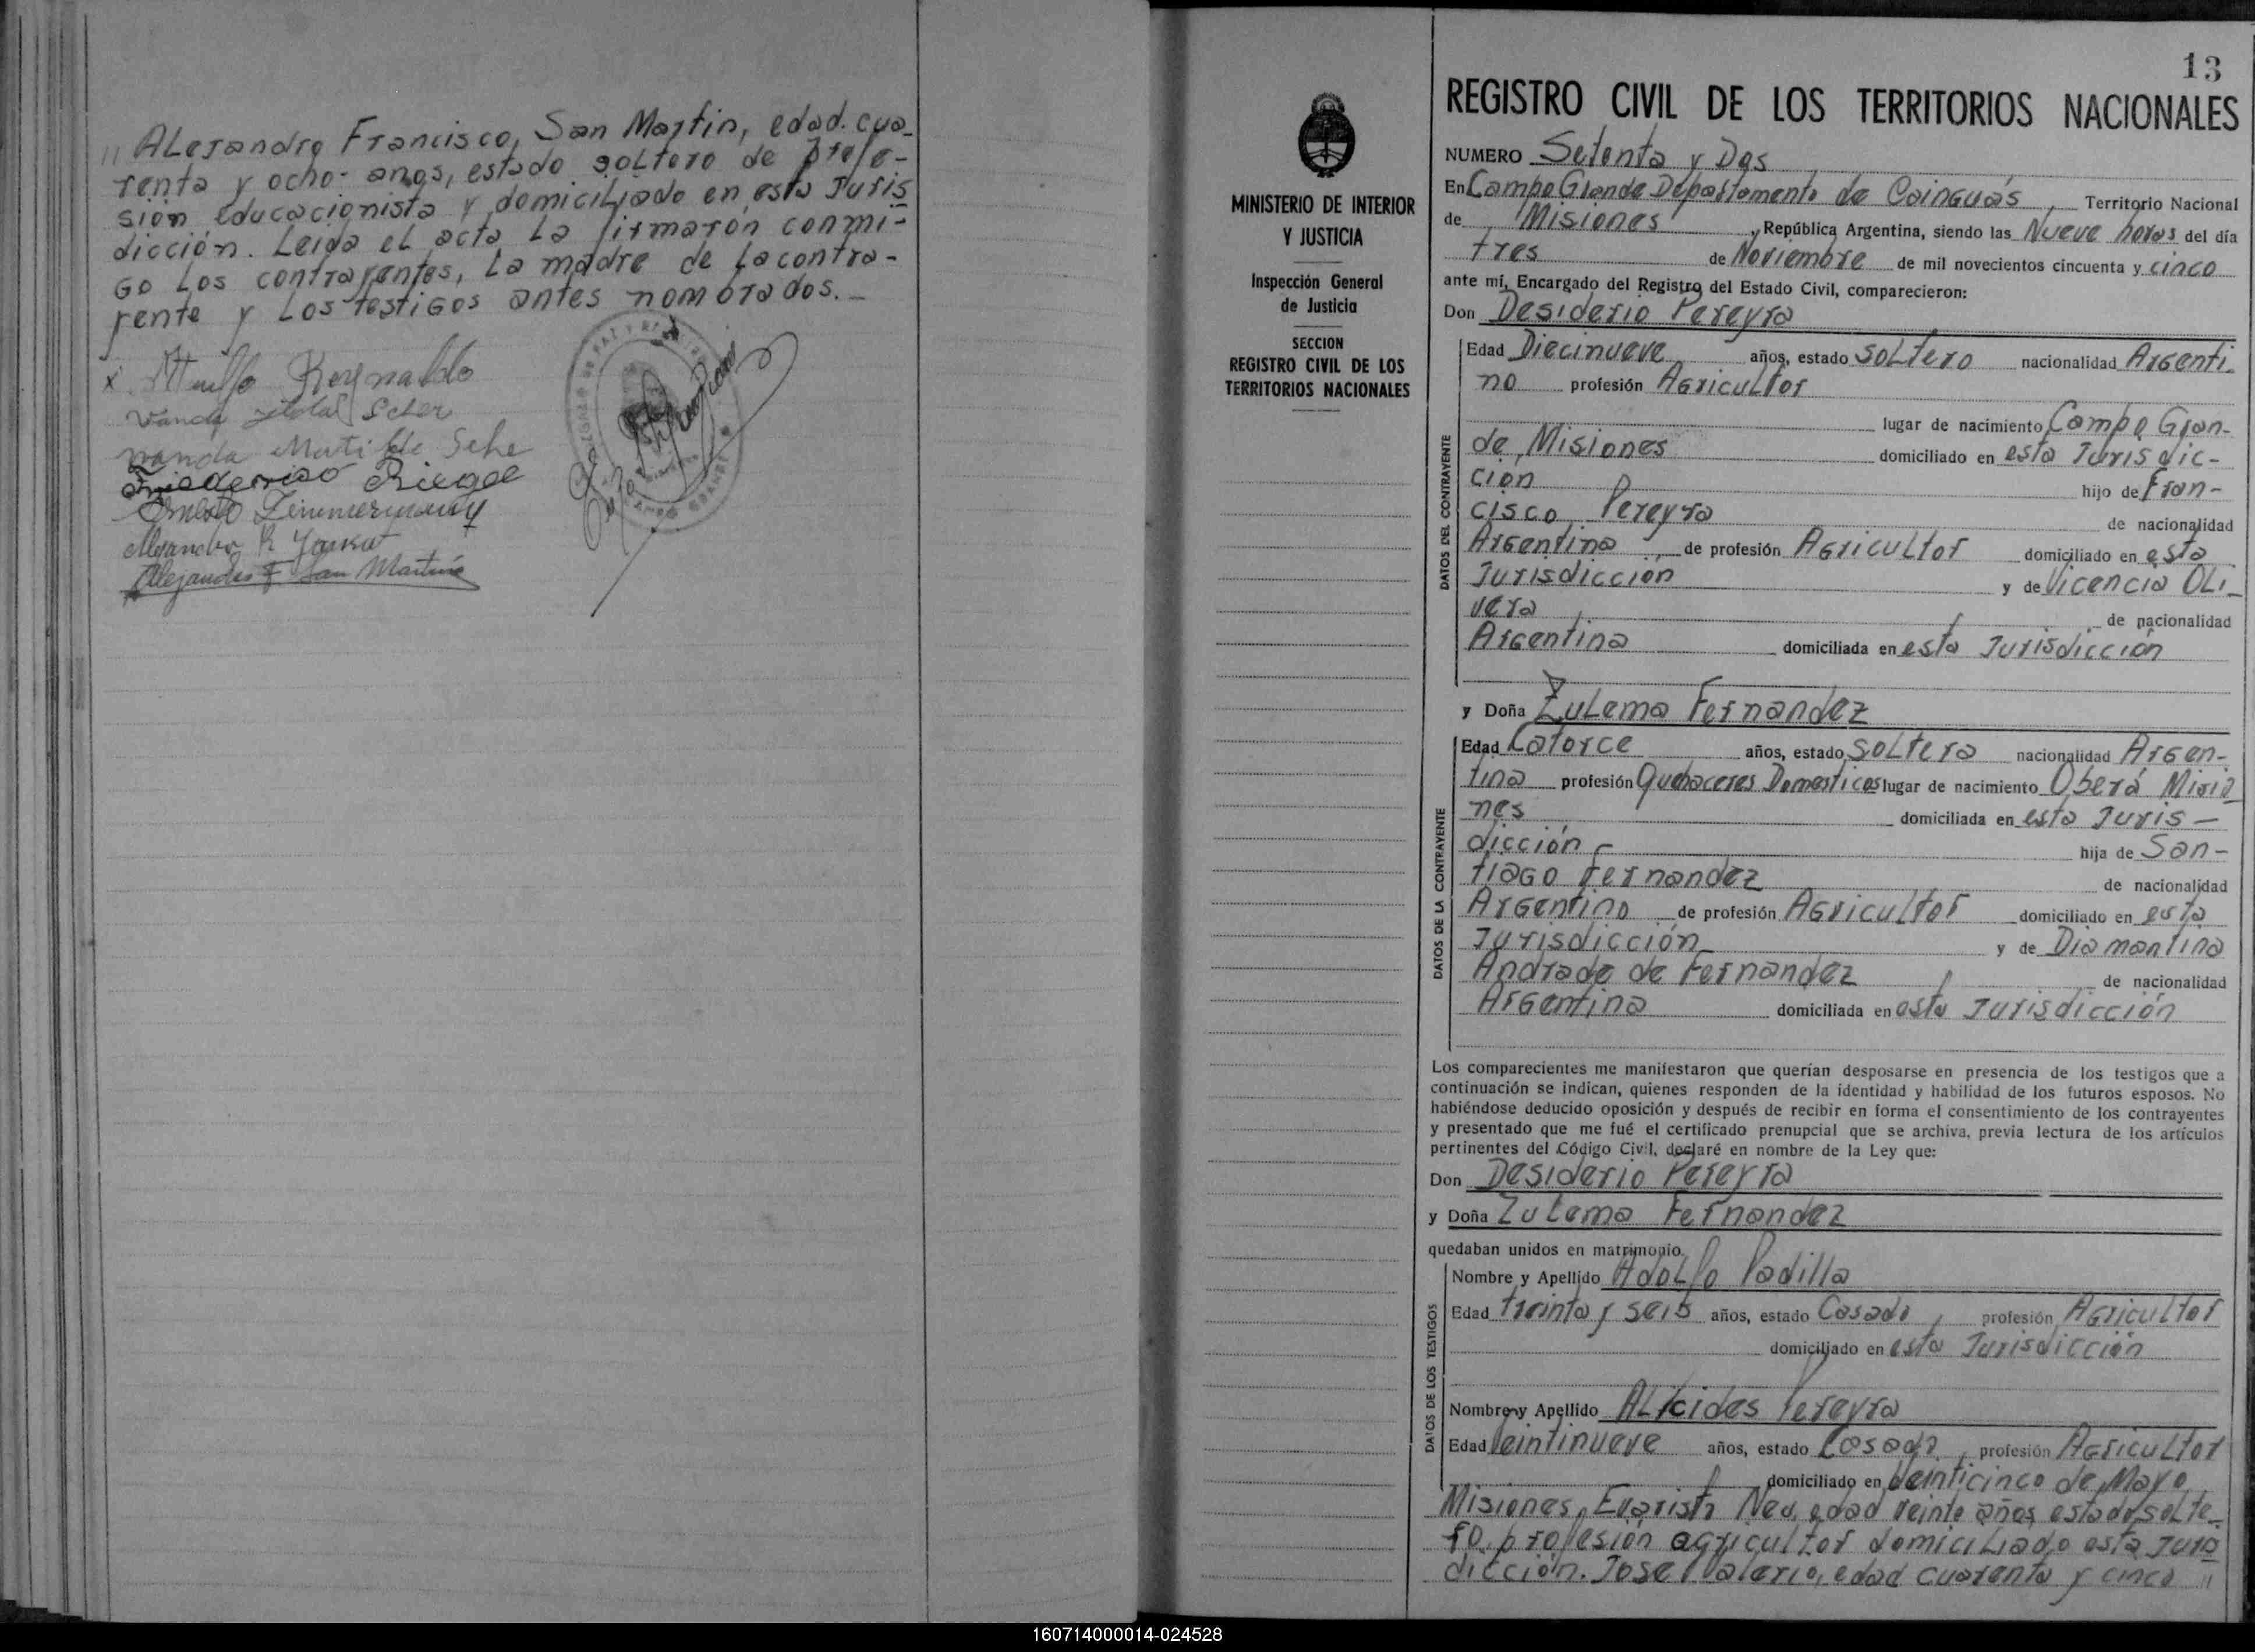 " Alejandro Francisco, San Martin, edad. cua-
renta y ocho- años, estado soltero de profe-
sión educacionista y domiciliado en esta Juris
dicción. Leida el acta la firmarón conmi-
go los contrayentes, la madre de la contra-
yente y los testigos antes nombrados.-
x Reynaldo
Vanda Scher
wanda Matilde Sche
Friederico Riegel
Ernesto Zimmermann
Alejandro R
Alejandro F San Martin
13
REGISTRO CIVIL DE LOS TERRITORIOS NACIONALES
MINISTERIO DE INTERIOR
Y JUSTICIA
Inspección General
de Justicia
SECCION
REGISTRO CIVIL DE LOS
TERRITORIOS NACIONALES
NUMERO Setenta y Dos
En Campo Grande Departamento de Cainguás, Territorio Nacional
de Misiones, República Argentina, siendo las Nueve horas del día
tres de Noviembre de mil novecientos cincuenta y cinco
ante mí, Encargado del Registro del Estado Civil, comparecieron:
Don Desiderio Pereyra
DATOS DEL CONTRAYENTE
Edad Diecinueve años, estado soltero nacionalidad Argenti-
no profesión Agricultor
lugar de nacimiento Campo Gran-
de, Misiones domiciliado en esta Jurisdic-
ción hijo de Fran-
cisco Pereyra de nacionalidad
Argentina, de profesión Agricultor domiciliado en esta
Jurisdicción y de Vicencia Oli-
vera de nacionalidad
Argentina domiciliada en esta Jurisdicción
y Doña Zulema Fernandez
DATOS DE LA CONTRAYENTE
Edad Catorce años, estado soltera nacionalidad Argen-
tina profesión Quehaceres Domesticos lugar de nacimiento Oberá Misio
nes domiciliada en esta Juris-
dicción- hija de San-
tiago Fernandez de nacionalidad
Argentino de profesión Agricultor domiciliado en esta
Jurisdicción y de Diamantina
Andrade de Fernandez de nacionalidad
Argentina domiciliada en esta Jurisdicción
Los comparecientes me manifestaron que querían desposarse en presencia de los testigos que a
continuación se indican, quienes responden de la identidad y habilidad de los futuros esposos. No
habiéndose deducido oposición y después de recibir en forma el consentimiento de los contrayentes
y presentado que me fué el certificado prenupcial que se archiva, previa lectura de los artículos
pertinentes del Código Civil, declaré en nombre de la Ley que:
Don Desiderio Pereyra
y Doña Zulema Fernandez
quedaban unidos en matrimonio.
DATOS DE LOS TESTIGOS
Nombre y Apellido Adolfo Padilla
Edad treinta y seis años, estado Casado, profesión Agricultor
domiciliado en esta Jurisdicción
Nombre y Apellido Alcides Pereyra
Edad Veintinueve años, estado Casado, profesión Agricultor
domiciliado en Veinticinco de Mayo
Misiones, Evaristo Neu, edad veinte años estado solte-
ro, profesión agricultor domiciliado esta Juris
dicción. Jose Valerio, edad cuarenta y cinco "
160714000014-024528